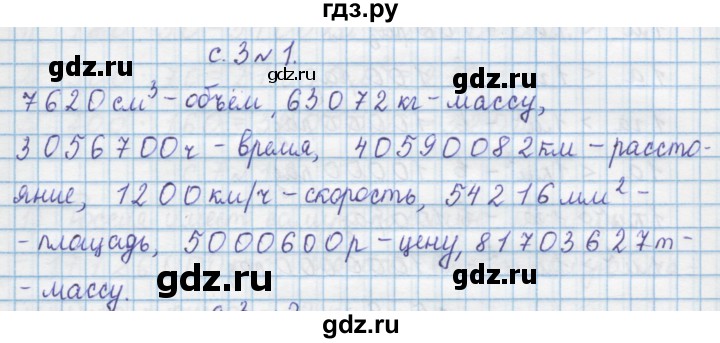 гдз.ру
с. 3 № 1.
gdz.ru gdz.ru gdz.ru
7620 см³ - объём, 63072 кг - массу,
3056700 ч - время, 40590082 км - рассто-
яние, 1200 км/ч - скорость, 54216 мм² -
gdz.ru gdz.ru
- площадь, 5000600 р - цену, 81703627 т -
- массу.
gdz.ru gdz.ru
gdz.ru